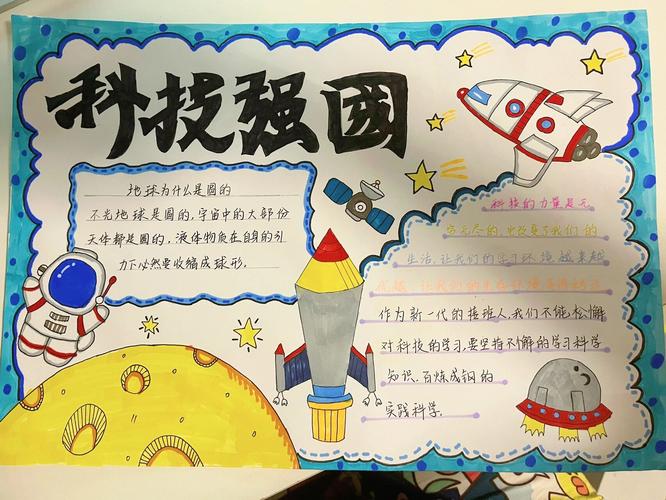 科技强國
地球为什么是圆的
不光地球是圆的,宇宙中的大部份
天体都是圆的,液体物质在自身的引
力下必然要收缩成球形.
科技的力量是无
穷无尽的,它改变了我们的
生活,让我们的学习环境越来越
优越,让我们的生存环境
作为新一代的接班人,我们不能松懈
对科技的学习,要坚持不懈的学习科学
知识.百炼成钢的
实践科学.